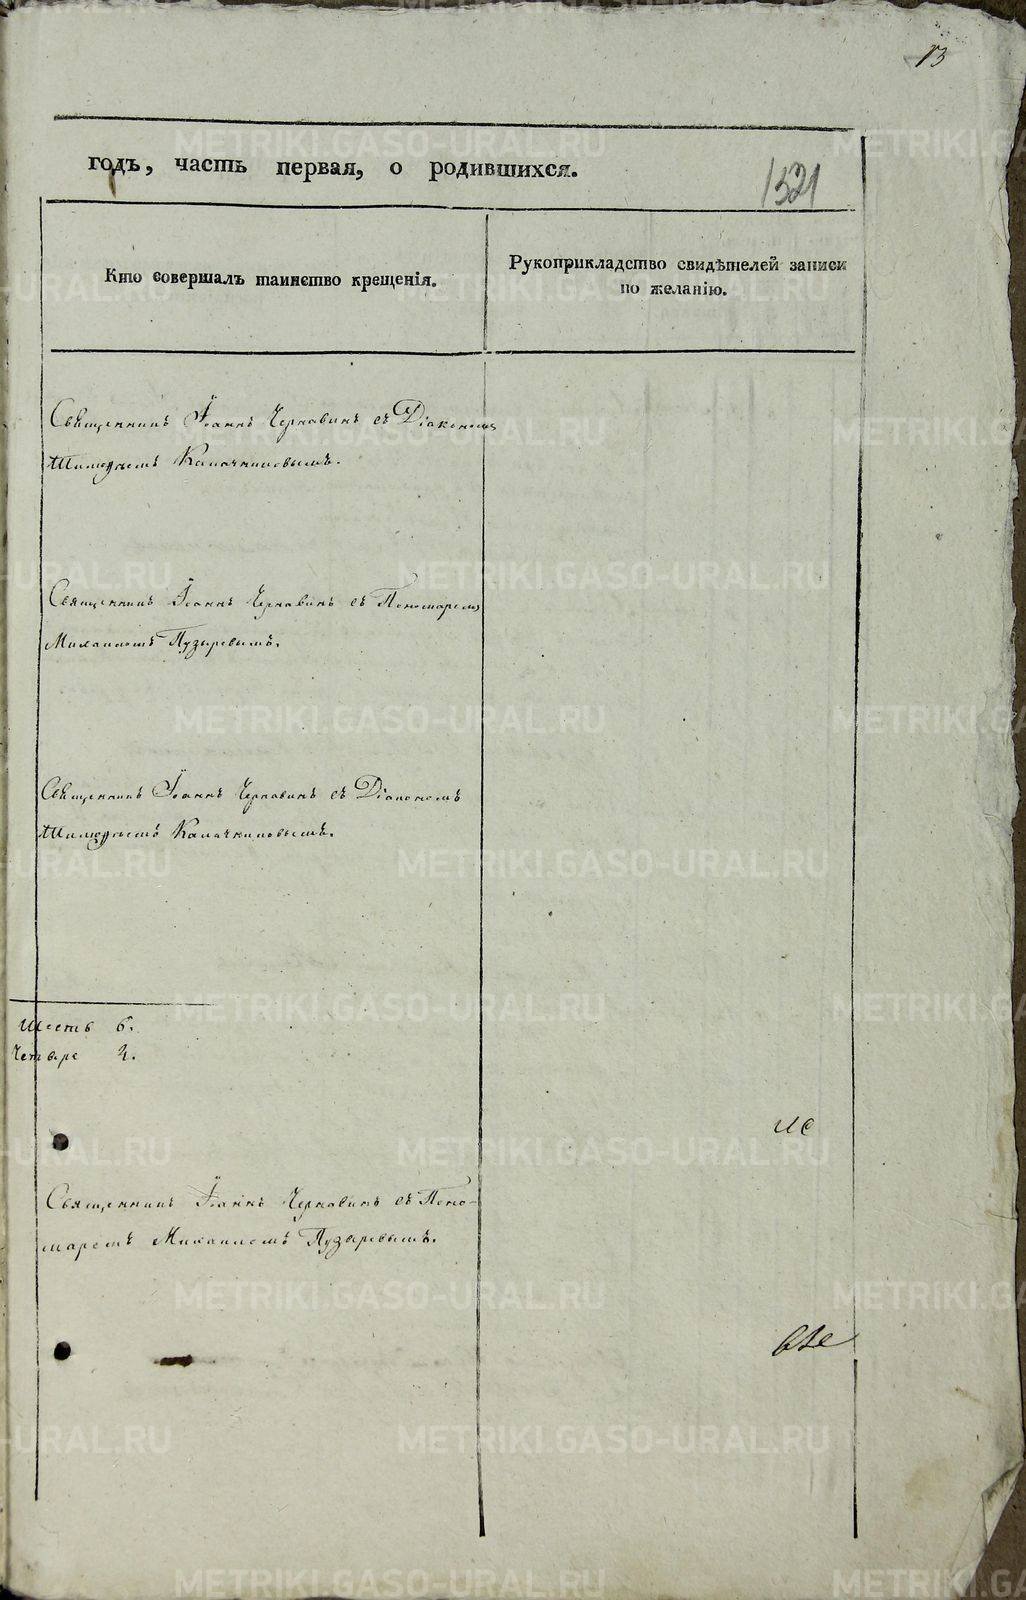 13
годъ, часть первая, о родившихся.
1321
Кто совершалъ таинство крещенія.
Рукоприкладство свидѣтелей записи
по желанію.
Священникъ Іоаннъ Чернавинъ съ Діакономъ
Калачниковымъ.
Священникъ Іоаннъ Чернавинъ съ Пономаремъ
Михаиломъ Пузыревымъ.
Священникъ Іоаннъ Чернавинъ съ Діакономъ
Калачниковымъ.
Шесть 6.
Четыре 4.
Священникъ Іоаннъ Чернавинъ съ Поно-
маремъ Михаиломъ Пузыревымъ.
METRIKI.GASO-URAL.RU